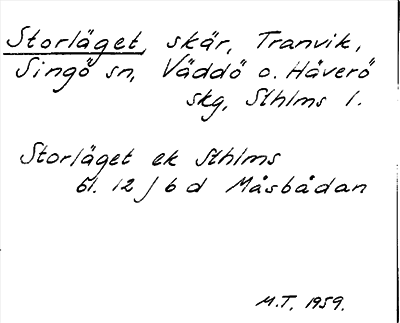 Storläget, skär, Tranvik,
Singö sn, Väddö o. Häverö
skg, Sthlms l.
Storläget ek Sthlms
bl. 12 J 6 d Måsbådan
M.T. 1959.